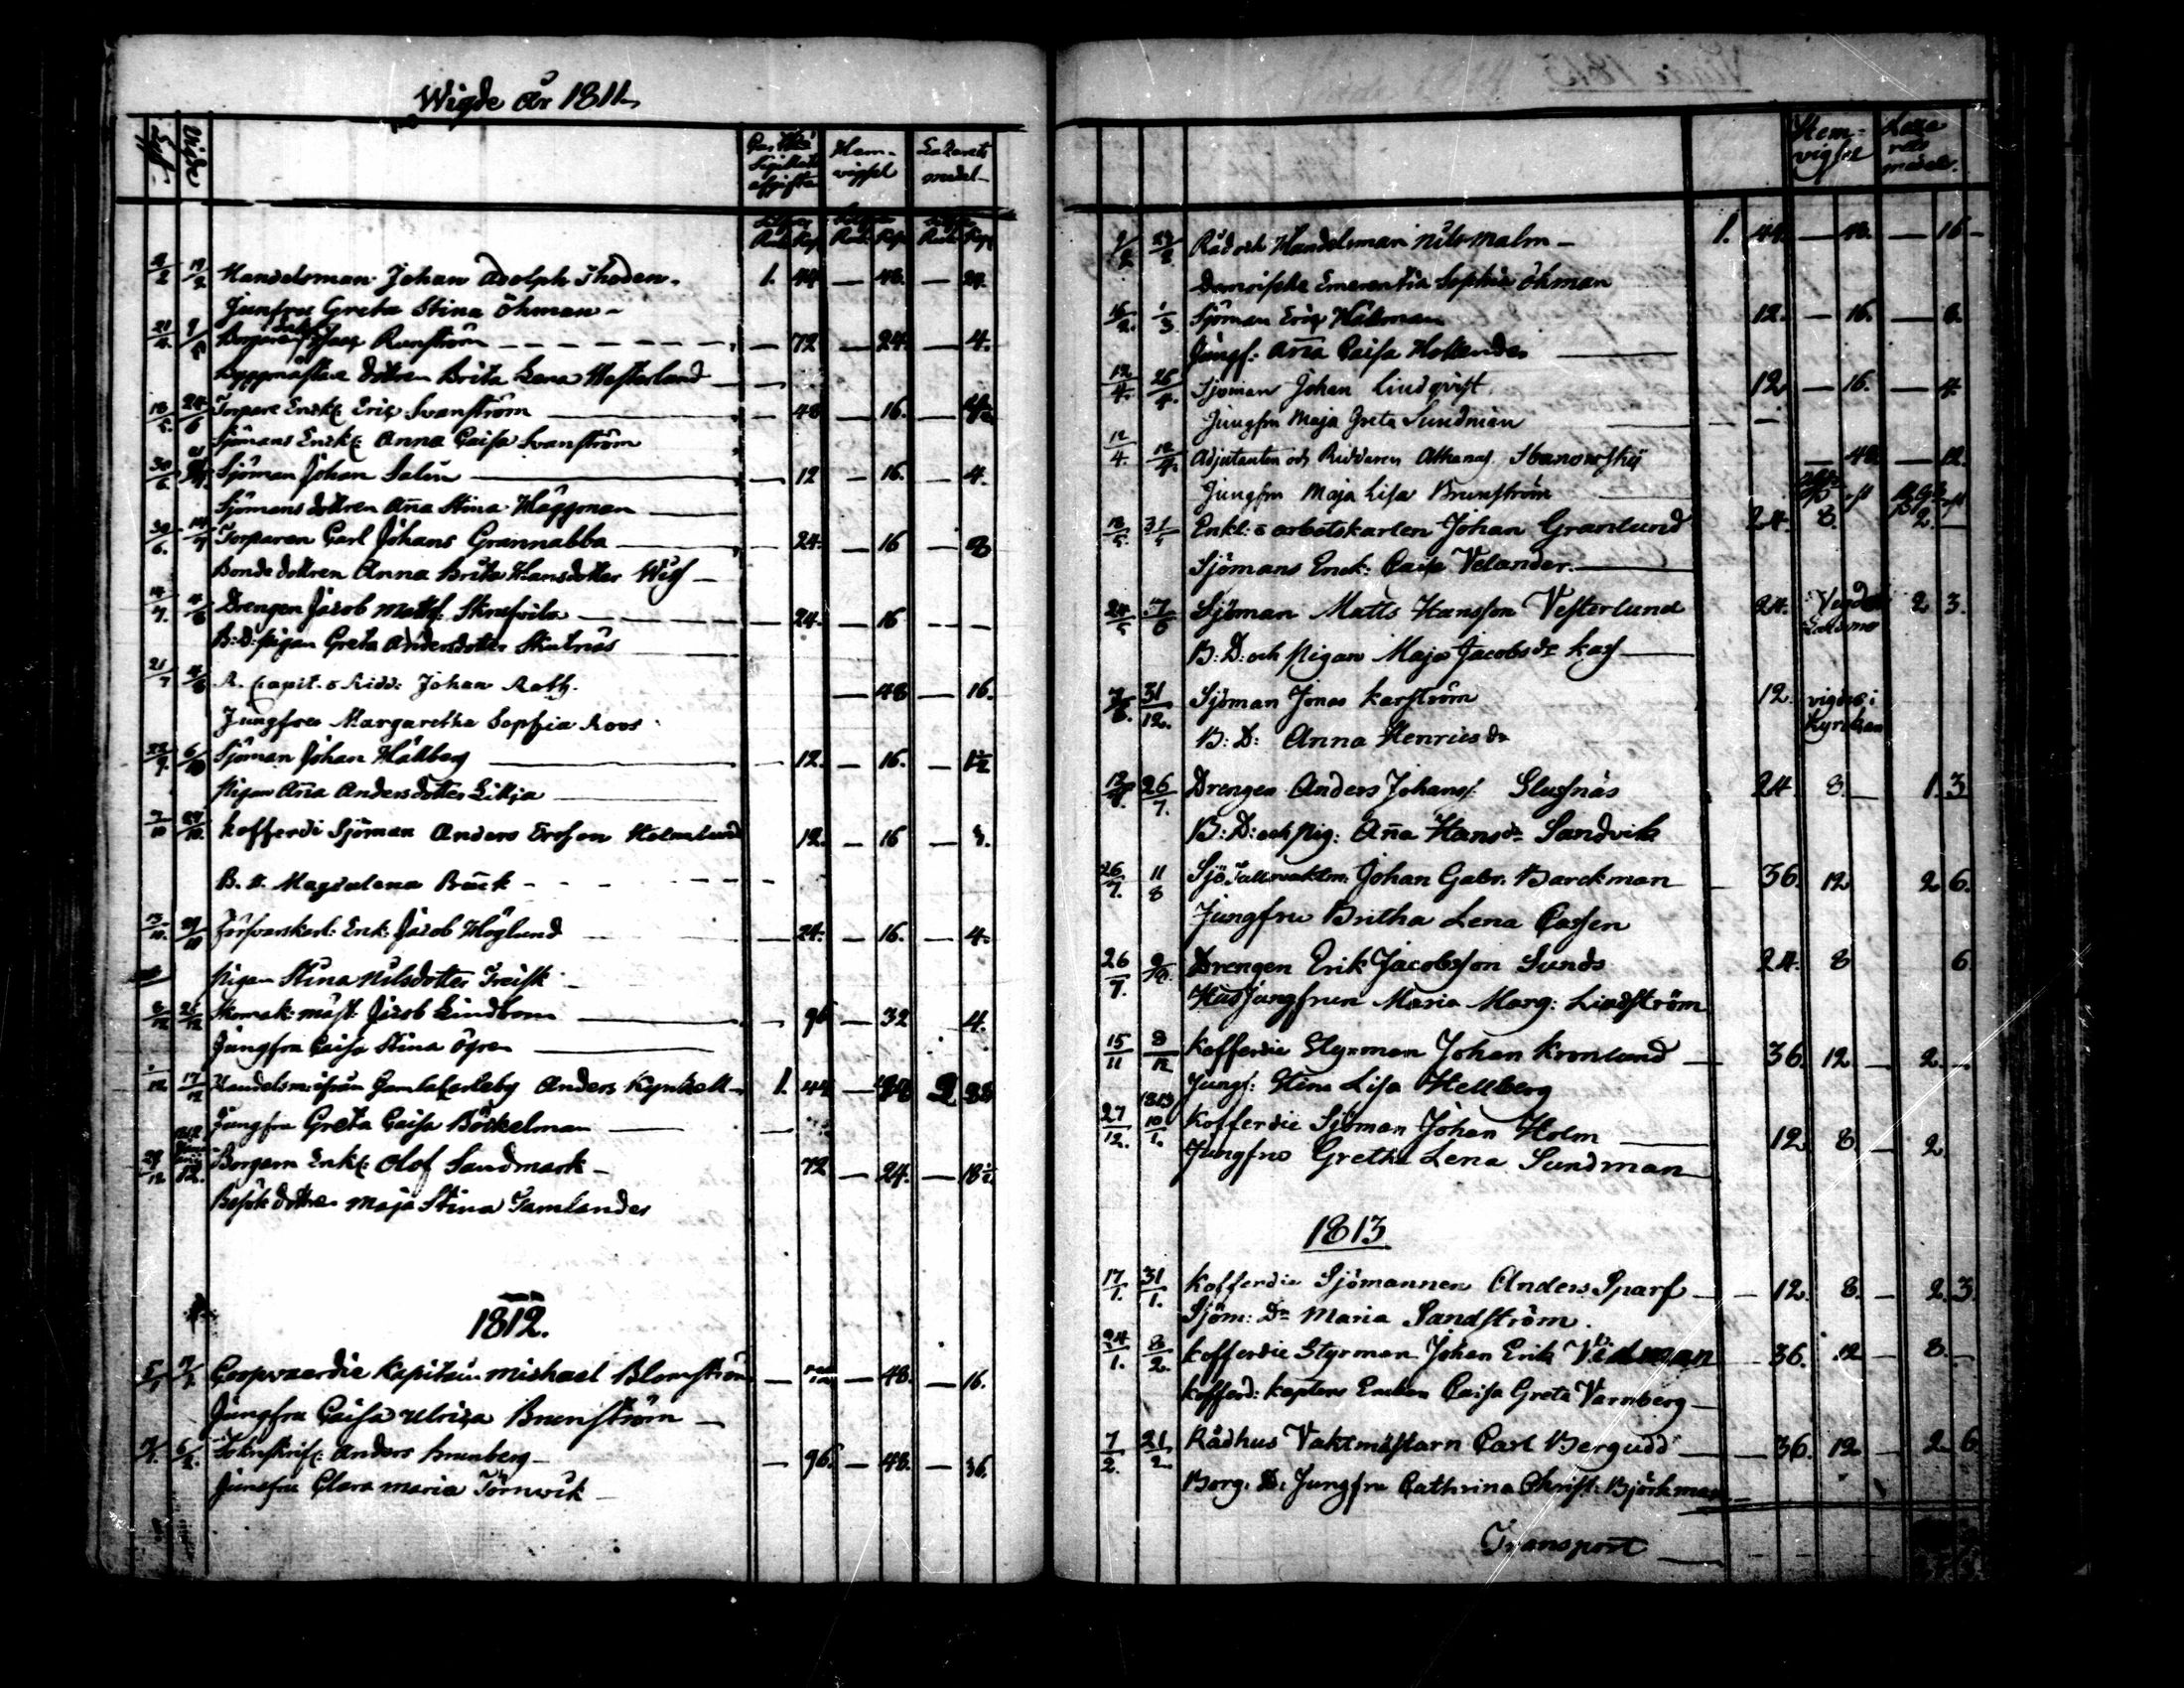 Wigde år 1811
Lyst. Vigde
Hem-vigsel Lazarets medel
2/2 19/2 Handelsman Johan Adolph Thoden. 1. 44 — 48. — 24.
Jungfru Greta Stina Öhman —
Runström — 72 — 24. — 4.
Byggmästare dottren Brita Lena Westerland
24/6 Torpare Enkl: Eriq Svanström — 48 — 16.
Sjömans Enk: Anna Caisa Svanström
30/6 Sjöman Johan Salin — 12 — 16. — 4.
Sjömans dottren Aña Stina Häggman
30/6. 14/7 Torparen Carl Johans Grannabba — 24. — 16 — 8
Bonde dottren Anna Brita Hansdotter Wist —
14/7. 4/8 Drengen Jacob Matts: Skrufvila — 24. — 16 — —
B: D: pigan Greta Andersdotter Skutnäs
21/7 4/8 R. Capit. o Ridd: Johan Roth. — 48 — 16.
Jungfru Margaretha Sophia Roos
22/9. 6/10 Sjöman Johan Hällberg — 12. — 16. — 1½
Pigan Aña Andersdotter Lillja
7/10 27/10. Kofferdi Sjöman Anders Ersson Holmlund 12. — 16 — 3.
B. D. Magdalena Bräck
13/10. 29/10 Enk: Jacob Höglund — 24. — 16. — 4.
Pigan Stina Nilsdotter Treisk
8/12 26/12 Skomak: mäst: Jacob Lindbom — 96 — 32 4.
Jungfru Caisa Stina Ögren
1/12 17/12 Handelsm: ifrån Gamlakarleby Anders Kynzell 1. 44 — 2
Jungfru Greta Caisa Böckelman
29/12 12. Borgarn Enkl: Olof Sandmark — 72 — 24. — 18½
dottren Maja Stina Jamlander
1812.
Coopvaardie Kapiten Michael Blomström — 48. — 16.
Jungfru Caisa Ulrica Brunström —
6/2. Anders Brunberg — 96. — 48. — 36.
Jungfru Clara Maria Törnwik
Hem-vigsel Lazarets medel.
9/2 23/2 Råd och Handelsman Nils Malm — 1. 44. — 48. — 16 —
Demoiselle Emerentia Sophia Öhman
16/2. 1/3. Sjöman Eriq Hällman 12. — 16. — 8.
Jungf: Aña Caisa Hollender
12/4. 26/4. Sjöman Johan Lindqvist. 12 — 16. — 4
Jungfru Maja Greta Sundman
12/4. 12/4. Adjutanten och Riddaren Athanas. Sbanowskij — 48 — 12.
Jungfru Maja Lisa Brunström
18/5. 31/5 Enkl: o arbetskarlen Johan Granlund 24. 8. 2. —
Sjömans Enk: Caisa Velander
24/5 7/6 Sjöman Matts Hansson Vesterlund 24. Vigde Larsmo 2 3.
B: D: och Pigan Maja Jacobs dr Kass
31/12. Sjöman Jonas Karström 12. vigdes i Kyrckan
B: D: Anna Henrics dr
26/7. Drengen Anders Johanss: Slussnäs 24. 8. — 1. 3
B: D: och Pig: Aña Hans dr Sandvik
26/7. 11/8 Sjö Tullvaktm: Johan Gabr. Barckman 36. 12 2 6.
Jungfru Britha Lena Cassen
26/7. Drengen Erik Jacobsson Sunds 24. 8 6
Hus Jungfrun Maria Marg: Lindström
15/11 8/12 Kofferdie Styrman Johan Kronlund — 36. 12. — 2. —
Jungf: Stina Lisa Hellberg
27/12. 1813 10/1. Kofferdie Sjöman Johan Holm — 12. 8. — 2
Jungfru Gretha Lena Sundman
1813
17/1. 31/1. Kofferdie Sjömannen Anders Sparf — 12. 8. — 2. 3.
Sjöm: Dr Maria Sandström.
24/1. 8/2. Kofferdie Styrman Johan Erik Vidman — 36. 12 — 8. —
Kofferd: Kaptens Enckan Caisa Greta Varnberg —
7/2. 21/2 Rådhus Vaktmästarn Carl Bergudd — 36. 12 — 2 6.
Borg. D: Jungfru Cathrina Christ: Björkman —
Transport —